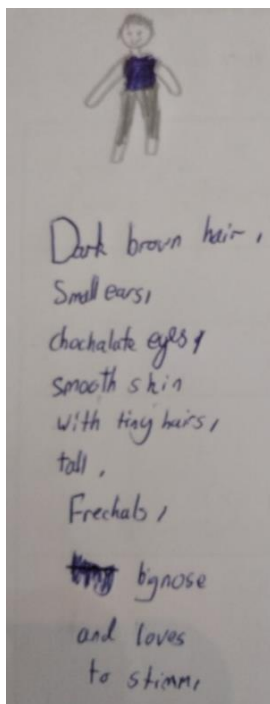 Dark brown hair,
Small ears,
chochalate eyes,
smooth skin
with tiny hairs,
tall,
Frechals,
bignose
and loves
to stimm,